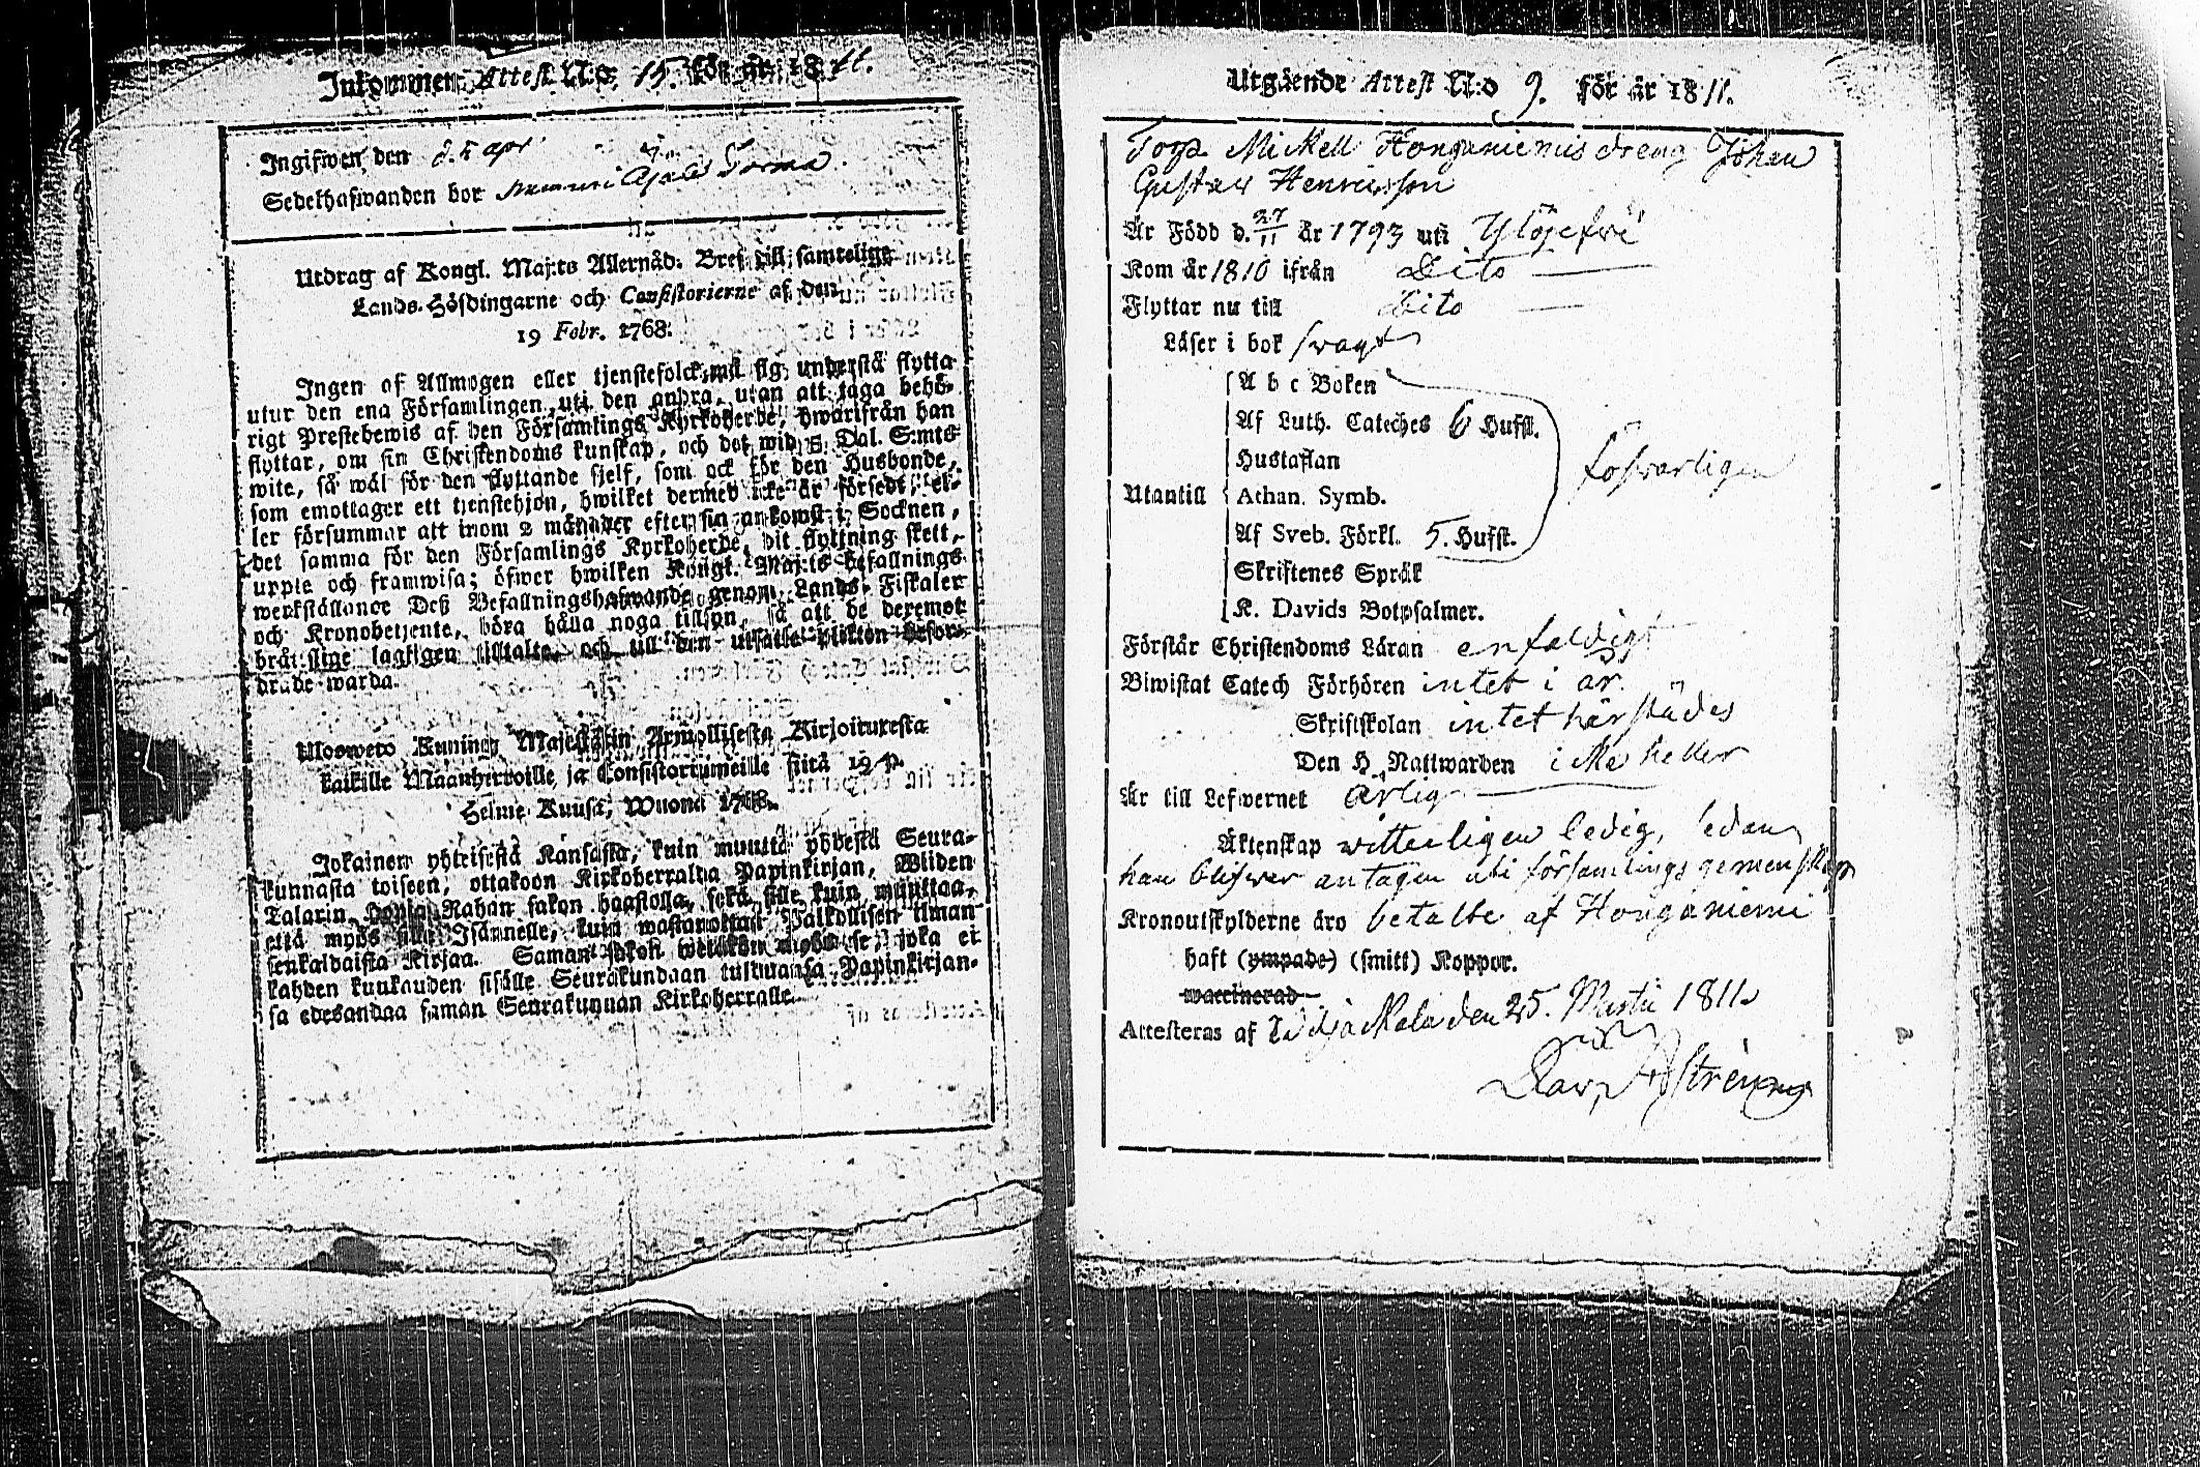 Inkommen Attest N:o 15. för år 1811.
Ingifwen den d. 5 apr
Sedelhafwanden bor
Utdrag af Kongl. Maj:ts Allernåd. Bref till samtelige
Lands-Höfdingarne och Consistorierne af den
19 Febr. 1768.
Ingen af Allmogen eller tjenstefolck må sig understå flytta
utur den ena Församlingen uti den andra, utan att taga behö-
rigt Prestebewis af den Församlings Kyrkoherde, hwarifrån han
flyttar, om sin Christendoms kunskap, och det wid 5 Dal. S:mts
wite, så wäl för den flyttande sjelf, som ock för den Husbonde,
som emottager ett tjenstehjon, hwilket dermed icke är försedt, el-
ler försummar att inom 2 månader efter sin ankomst i Socknen,
det samma för den Församlings Kyrkoherde, dit flyttning skett,
uppte och framwisa; öfwer hwilken Kongl. Maj:ts befallnings
werkställande Deß Befallningshafwande genom Lands-Fiskaler
och Kronobetjente, böra hålla noga tillsyn, så att de deremot
brätslige lagligen tilltalte och till den utsatte plikten befor-
drade warda.
Ulosweto Kuning Majestätin Armollisesta Kirjoituxesta
kaikille Maanherroille ja Consistoriumeille siitä 19 p.
Helme Kuusa, Wuona 1768.
Jokainen yhteisestä Kansasta, kuin muuttä yhdestä Seura-
kunnasta toiseen, ottakoon Kirkoherralda Papinkirjan, Wiiden
Talarin Hopia Rahan sakon haastolla, sekä sille kuin muuttaa,
että myös sille Isännelle, kuin wastanottaa Palkollisen ilman
senkaldaista Kirjaa. Saman sakon wetäkön myös se, joka ei
kahden kuukauden sisälle Seurakundaan tultuansa Papinkirjan-
sa edesandaa saman Seurakunnan Kirkoherralle.
Utgående Attest N:o 9. för år 1811.
Torp. Mickell Honganiemis dreng Johan
Gustav Henricsson
Är Född d. 27/11 år 1793 uti Ylöjefwi
Kom år 1810 ifrån Dito
Flyttar nu till Dito
Läser i bok svagt
A b c Boken
Af Luth. Cateches 6 Hufst.
Hustaflan
Utantill Athan. Symb.
Af Sveb. Förkl. 5. Hufst.
försvarligen
Skriftenes Språk
K. Davids Botpsalmer.
Förstår Christendoms Läran enfaldigt
Biwistat Catech Förhören intet i år.
Skriftskolan intet härstädes
Den H. Nattwarden icke heller
Är till Lefwernet ärlig
Äktenskap witterligen ledig, sedan
han blifwer antagen uti församlings gemenskap
Kronoutskylderne äro betalte af Honganiemi
haft (ympade) (smitt) Koppor.
waccinerad
Attesteras af den 25. Martii 1811.